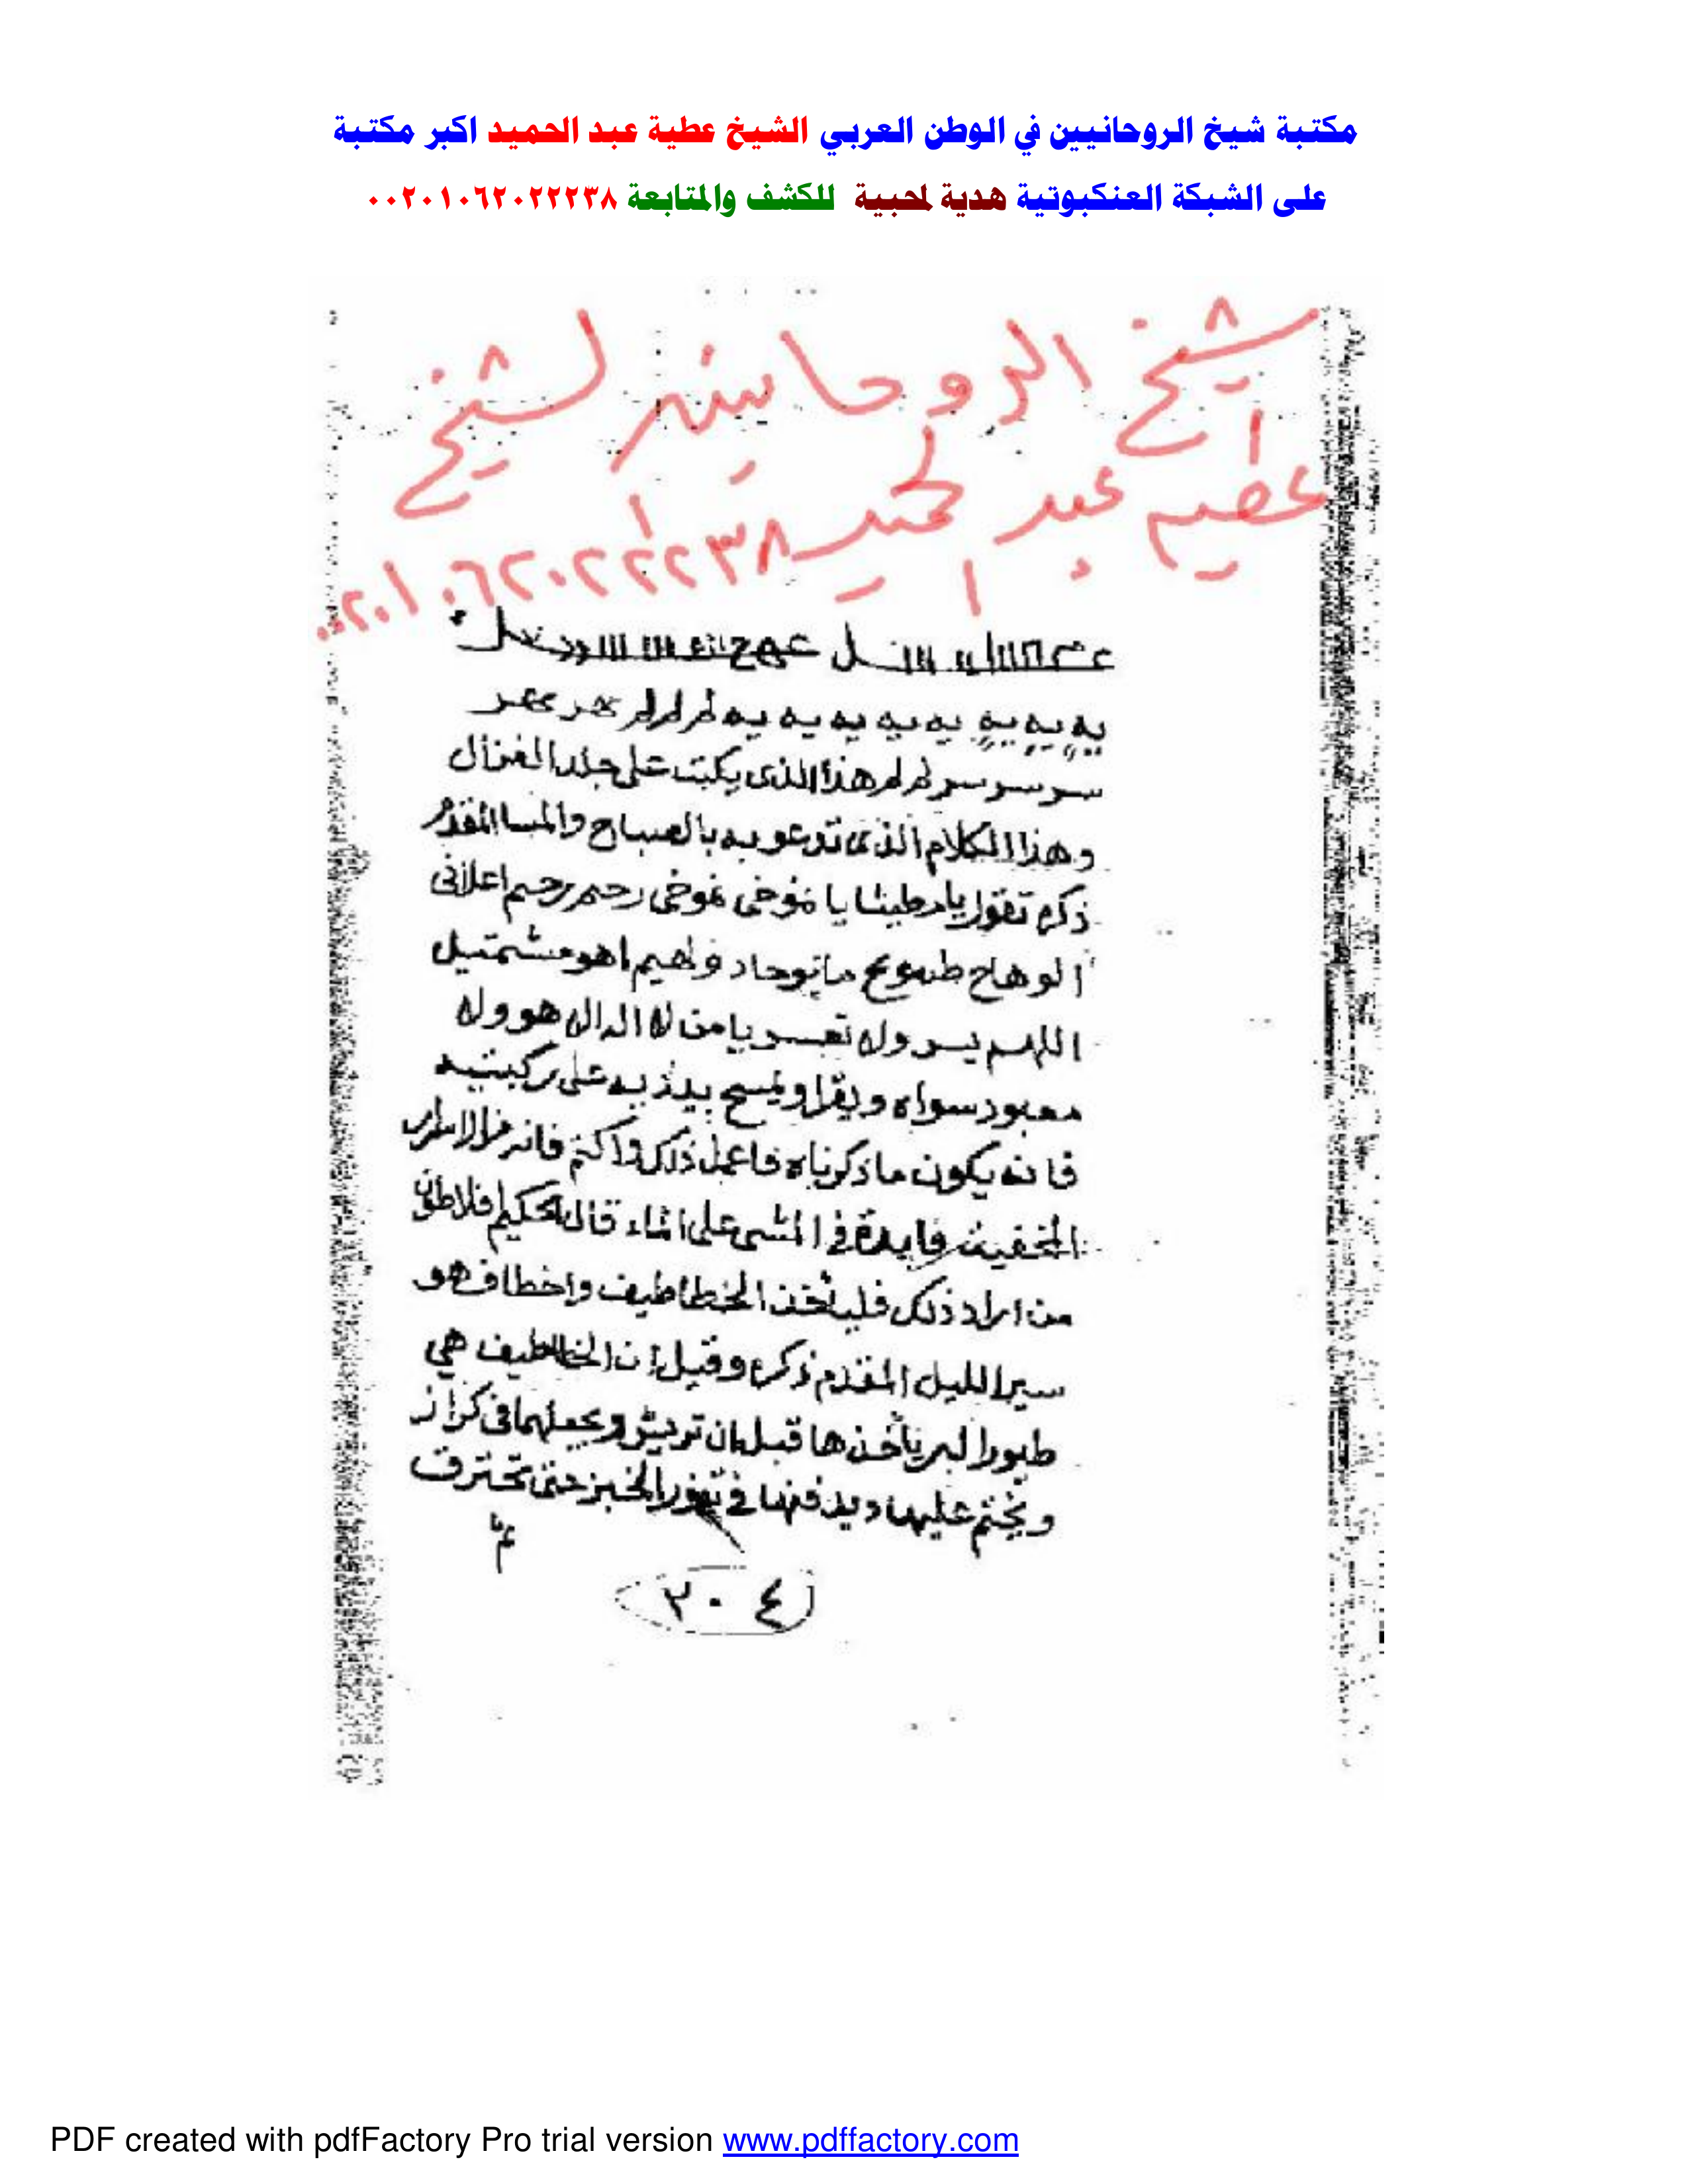 مكتبة شيخ الروحانيين في الوطن العربي الشيخ عطية عبد الحميد اكبر مكتبة
على الشبكة العنكبوتية هدية لمحبية للكشف والمتابعة ٠٠٢٠١٠٦٢٠٢٢٢٣٨
شيخ الروحانيين لشيخ
عطيه عبد الحميد ٠٠٢٠١٠٦٢٠٢٢٢٣٨
يه يه يه يه يه يه يه يه
هذا الذى يكتب على جلد الغزال
وهذا الكلام الذى تدعو به بالصباح والمسا المقدم
ذكره تقول يا رحيم
الوهاج
اللهم يسر ولا تعسر يا من لا اله الا هو ولا
معبود سواه ويقرا ويمسح بيديه على ركبتيه
فانه يكون ما ذكرناه فاعمل ذلك واكتم فانه من الاسرار
المخفيه فايدة في المشى على الماء قال الحكيم افلاطون
من اراد ذلك فلياخذ الخطاطيف واخطاف هو
سير الليل المقدم ذكره وقيل ان الخطاطيف هي
طيور البر ياخذها قبل ان تريش ويجعلهما فى كراز
ويختم عليها ويدفنها في تنور الخبز حتى تحترق
٣٠٤
PDF created with pdfFactory Pro trial version www.pdffactory.com